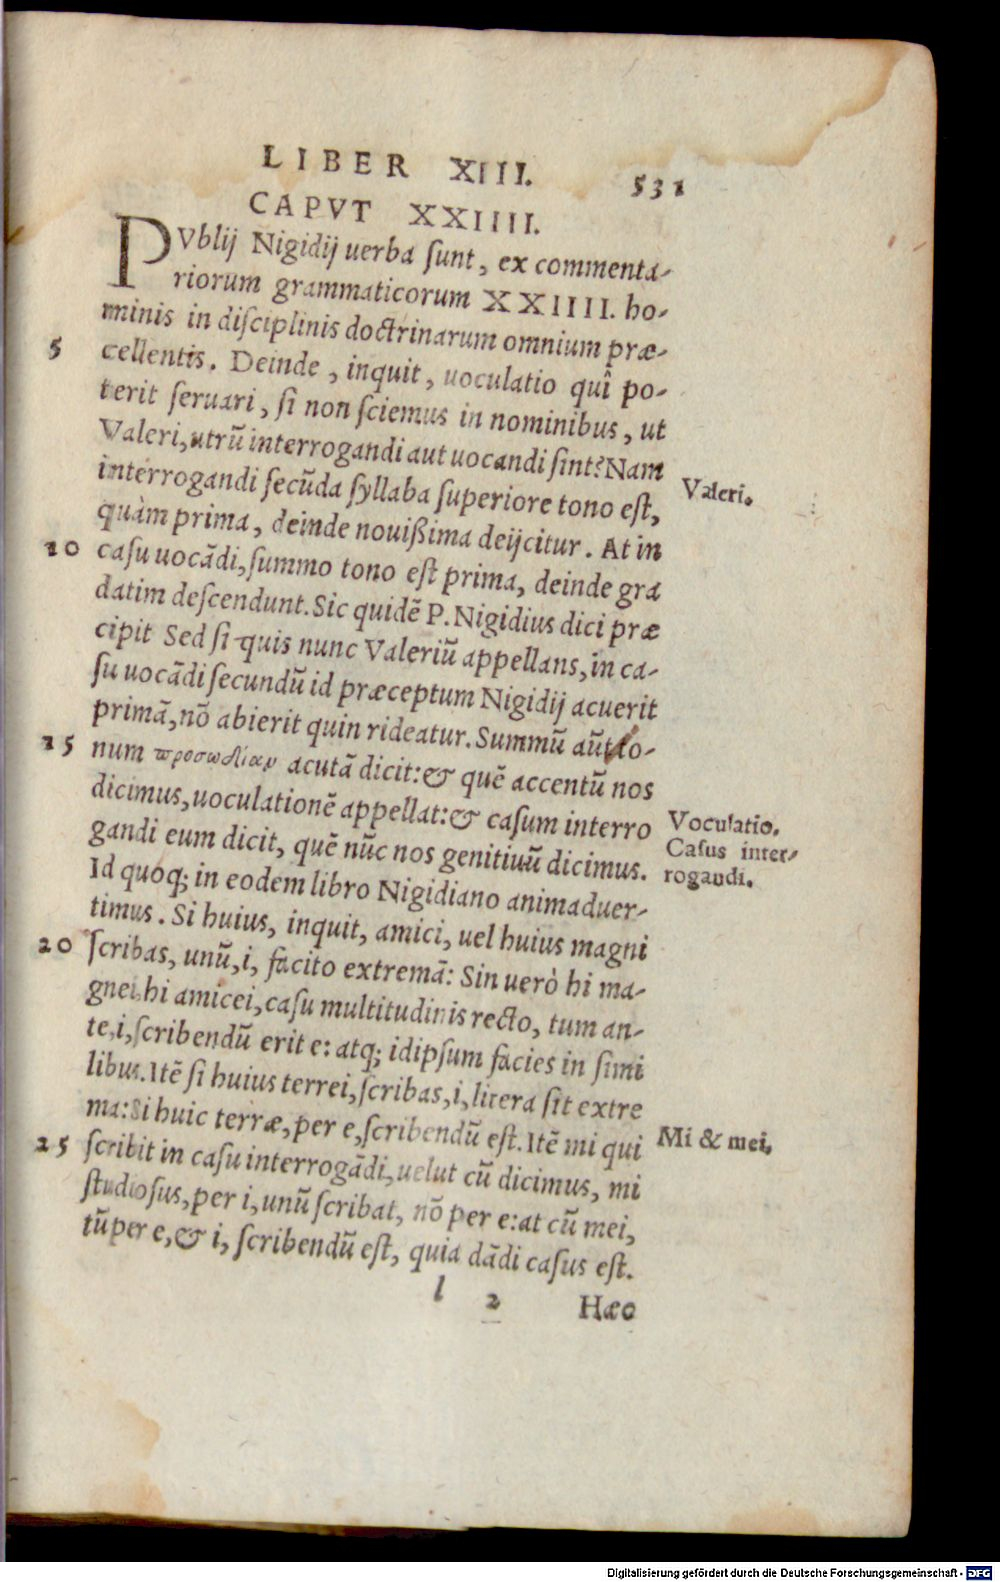 LIBER XIII. 531
CAPVT XXIIII.
PVblij Nigidij uerba ſunt, ex commenta-
riorum grammaticorum XXIIII. ho-
minis in diſciplinis doctrinarum omnium præ-
5 cellentis. Deinde, inquit, uoculatio quî po-
terit ſeruari, ſi non ſciemus in nominibus, ut
Valeri, utrũ interrogandi aut uocandi ſint? Nam
interrogandi ſecũda ſyllaba ſuperiore tono eſt,
Valeri.
quàm prima, deinde nouißima deijcitur. At in
10 caſu uocãdi, ſummo tono eſt prima, deinde gra
datim deſcendunt. Sic quidẽ P. Nigidius dici præ
cipit Sed ſi quis nunc Valeriũ appellans, in ca-
ſu uocãdi ſecundũ id præceptum Nigidij acuerit
primã, nõ abierit quin rideatur. Summũ aũt to-
15 num προσωδίαν acutã dicit: & quẽ accentũ nos
dicimus, uoculationẽ appellat: & caſum interro
Voculatio.
gandi eum dicit, quẽ nũc nos genitiuũ dicimus.
Caſus inter-
rogandi.
Id quoq; in eodem libro Nigidiano animaduer-
timus. Si huius, inquit, amici, uel huius magni
20 ſcribas, unũ, i, facito extremã: Sin uerò hi ma-
gnei, hi amicei, caſu multitudinis recto, tum an-
te, i, ſcribendũ erit e: atq; idipſum facies in ſimi
libus. Itẽ ſi huius terrei, ſcribas, i, litera ſit extre
ma: Si huic terræ, per e, ſcribendũ eſt. Itẽ mi qui
Mi & mei.
25 ſcribit in caſu interrogãdi, uelut cũ dicimus, mi
ſtudioſus, per i, unũ ſcribat, nõ per e: at cũ mei,
tũ per e, & i, ſcribendũ eſt, quia dãdi caſus eſt.
l 2 Hæc
Digitalisierung gefördert durch die Deutsche Forschungsgemeinschaft - DFG